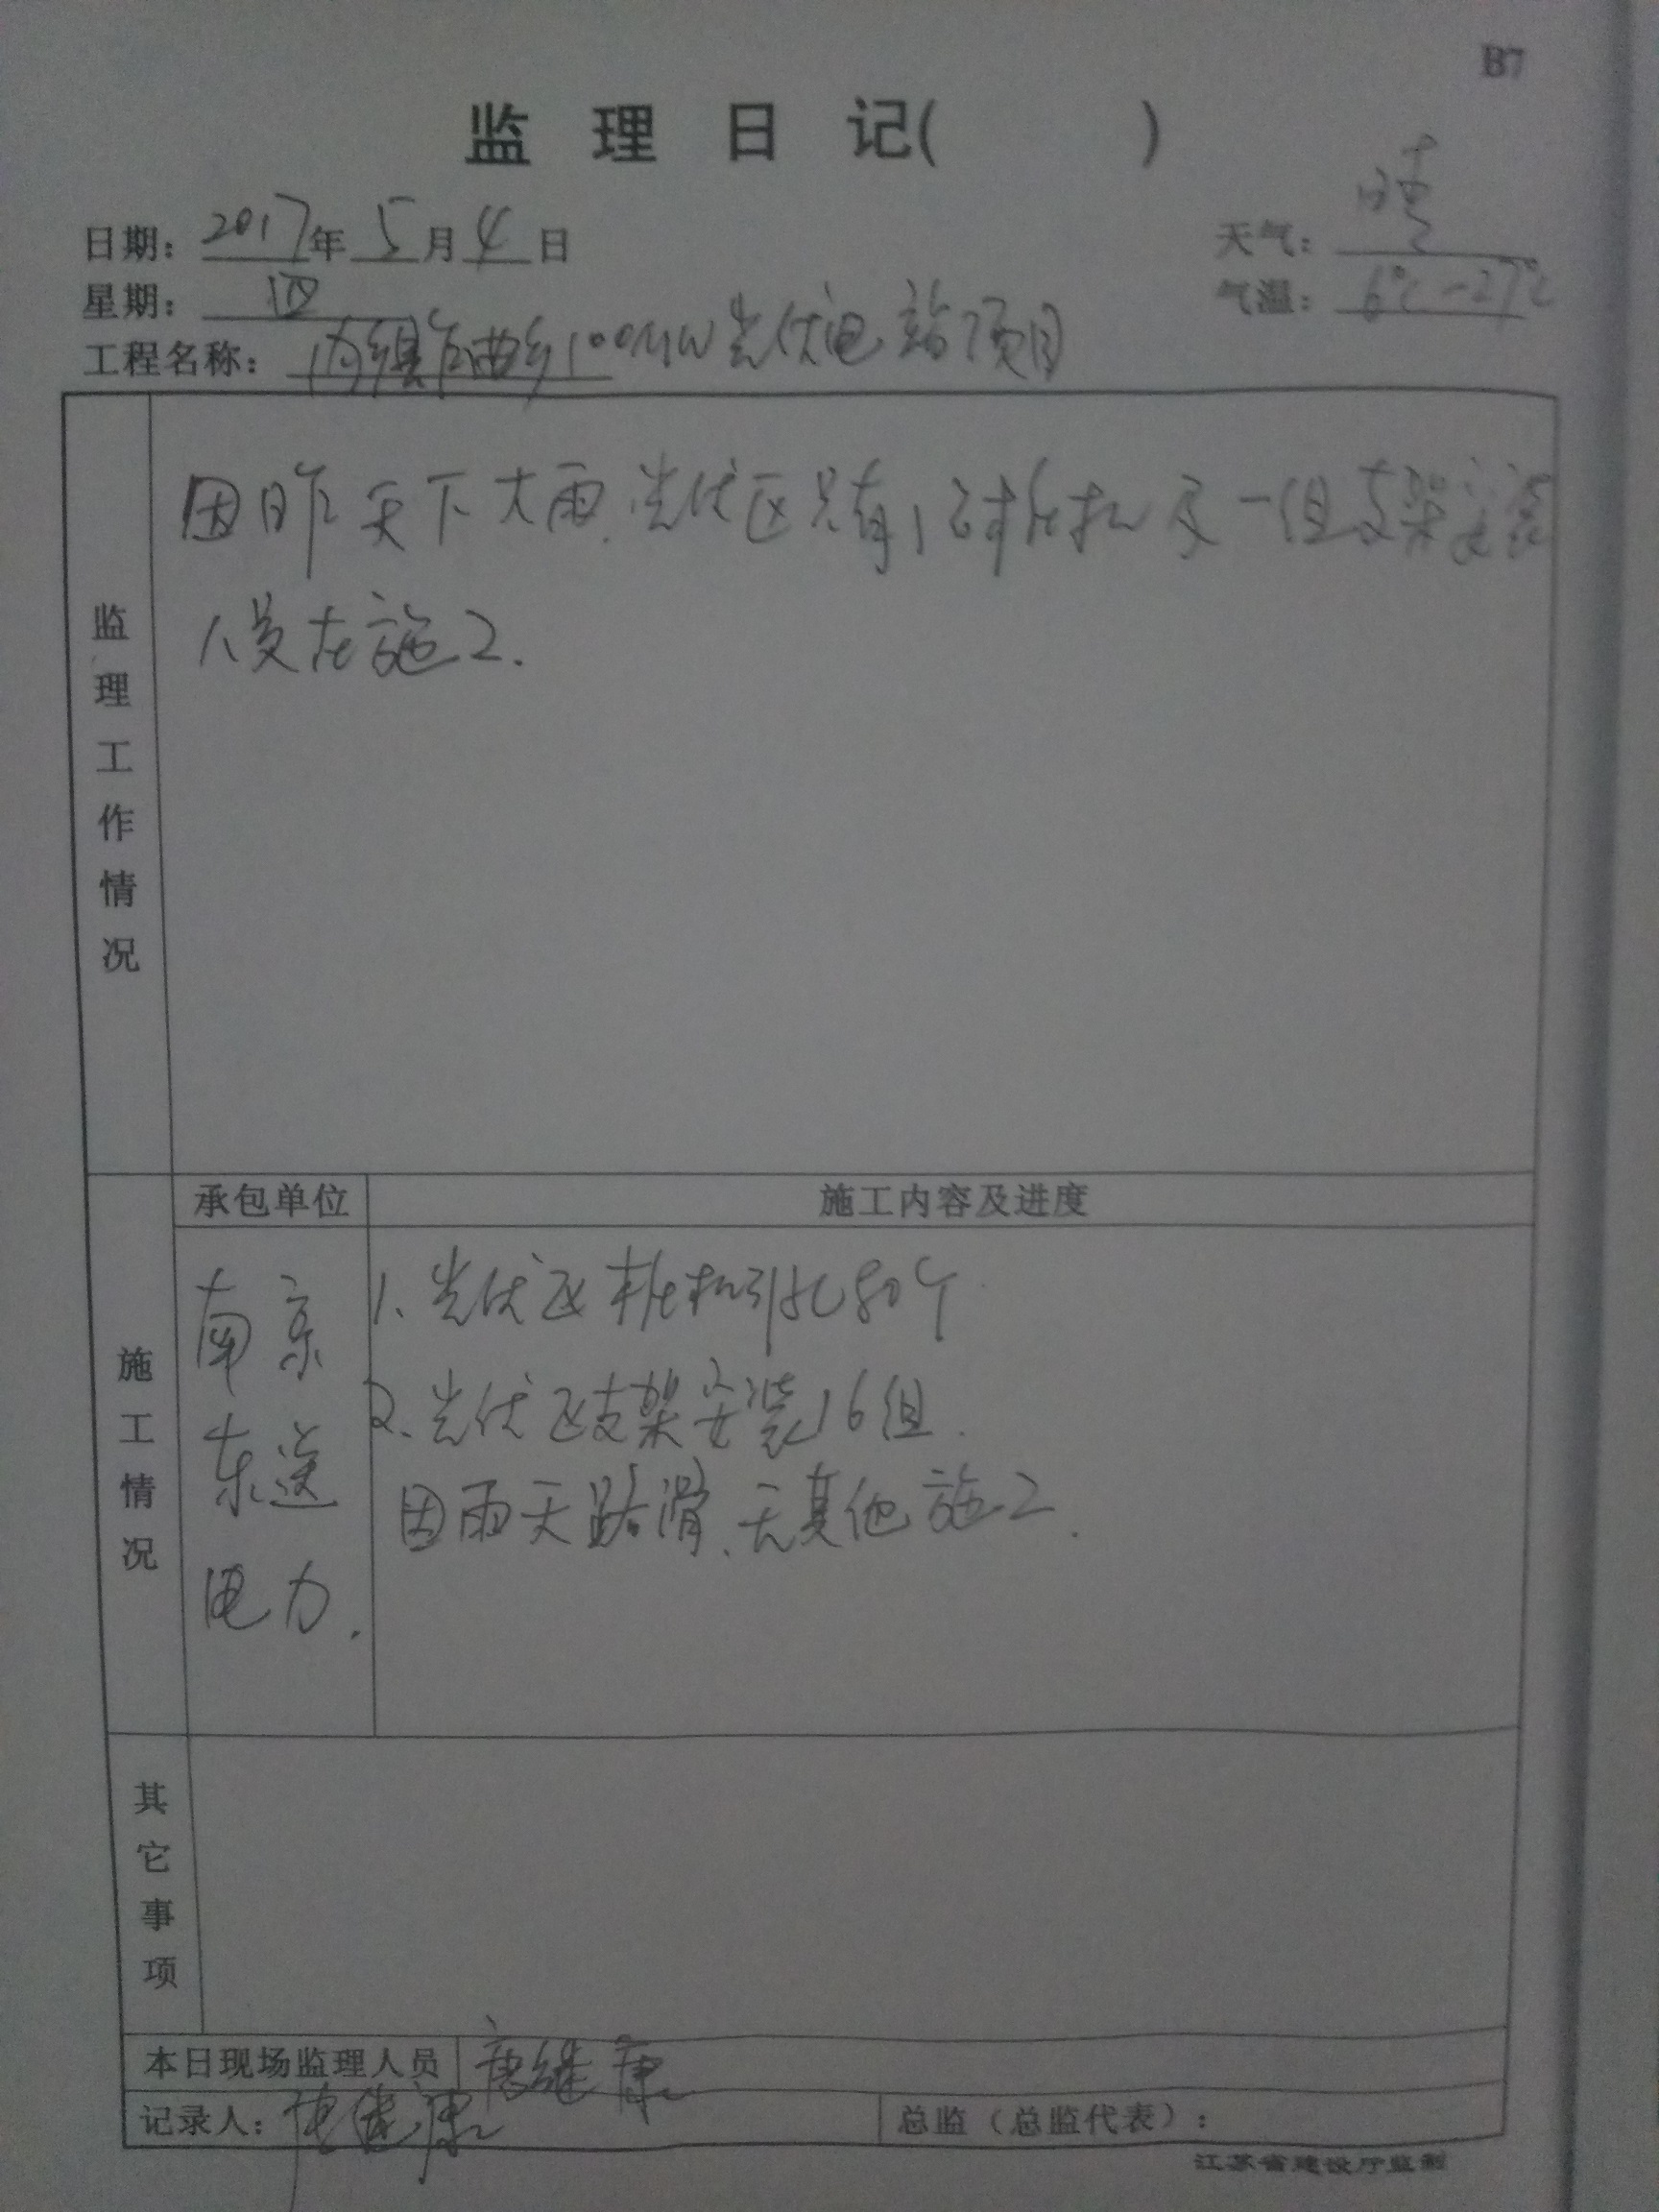 B7
监 理 日 记( )
日期: 2017年 5 月 4 日
天气: 晴
星期: 四
气温: 6℃-27℃
工程名称: 内 100MW光伏电站项目
监理工作情况
因昨天下大雨.光伏区只有1台桩机及一组支架安装
人员在施工.
施工情况
承包单位
施工内容及进度
南京
东送
电力.
1、光伏区桩机引孔80个
2、光伏区支架安装16组.
因雨天路滑、无其他施工.
其它事项
本日现场监理人员 唐继康
记录人: 唐继康
总监（总监代表）:
江苏省建设厅监制